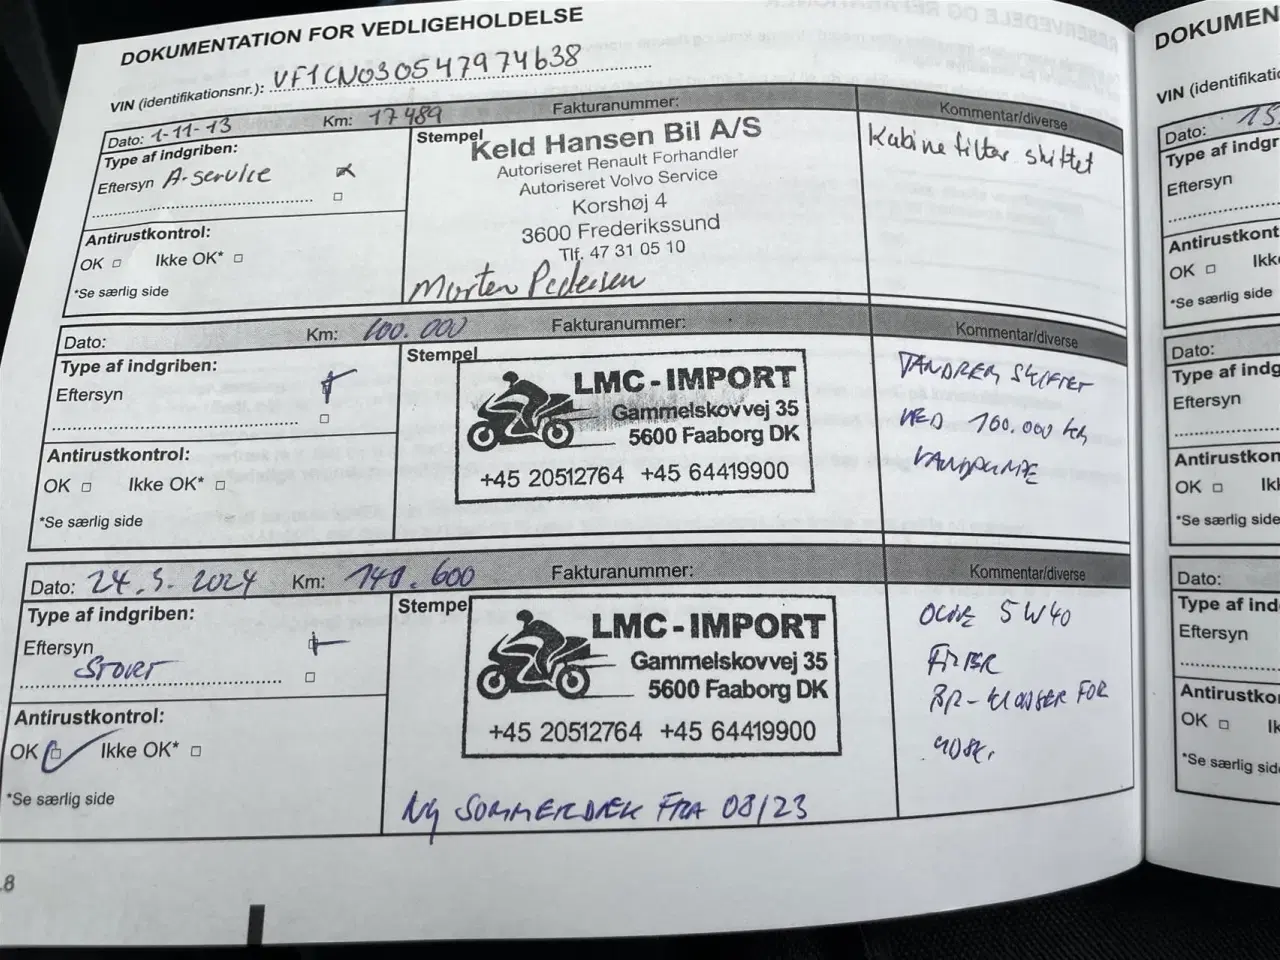 DOKUMENTATION FOR VEDLIGEHOLDELSE
VIN (identifikationsnr.): VF1CN030547974638
Dato: 1-11-13 Km: 17489 Fakturanummer: Kommentar/diverse
Type af indgriben:
Eftersyn A-service
Antirustkontrol:
OK □ Ikke OK* □
*Se særlig side
Stempel
Keld Hansen Bil A/S
Autoriseret Renault Forhandler
Autoriseret Volvo Service
Korshøj 4
3600 Frederikssund
Tlf. 47 31 05 10
Morten Pedersen
Kabinefilter skiftet
Dato: Km: 100.000 Fakturanummer: Kommentar/diverse
Type af indgriben:
Eftersyn
Antirustkontrol:
OK □ Ikke OK* □
*Se særlig side
Stempel
LMC-IMPORT
Gammelskovvej 35
5600 Faaborg DK
+45 20512764 +45 64419900
TANDREM SKIFTET
VED 100.000 km
VANDPUMPE
Dato: 24.5.2024 Km: 140.600 Fakturanummer: Kommentar/diverse
Type af indgriben:
Eftersyn
STORT
Antirustkontrol:
OK □ Ikke OK* □
*Se særlig side
Stempel
LMC-IMPORT
Gammelskovvej 35
5600 Faaborg DK
+45 20512764 +45 64419900
NY SOMMERDÆK FRA 08/23
OLIE 5W40
FILTER
BR-KLODSER FOR
8
DOKUMEN
VIN (identifikatio
Dato: 15
Type af indgr
Eftersyn
Antirustkont
OK □ Ikke
*Se særlig side
Dato:
Type af indg
Eftersyn
Antirustkon
OK □ Ik
*Se særlig sid
Dato:
Type af ind
Eftersyn
Antirustko
OK □ I
*Se særlig sid